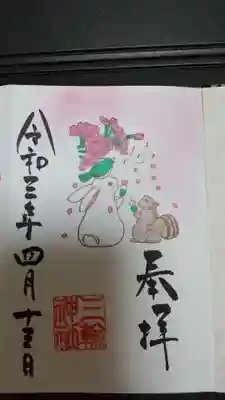 奉拝
三輪神社
令和三年四月十三日